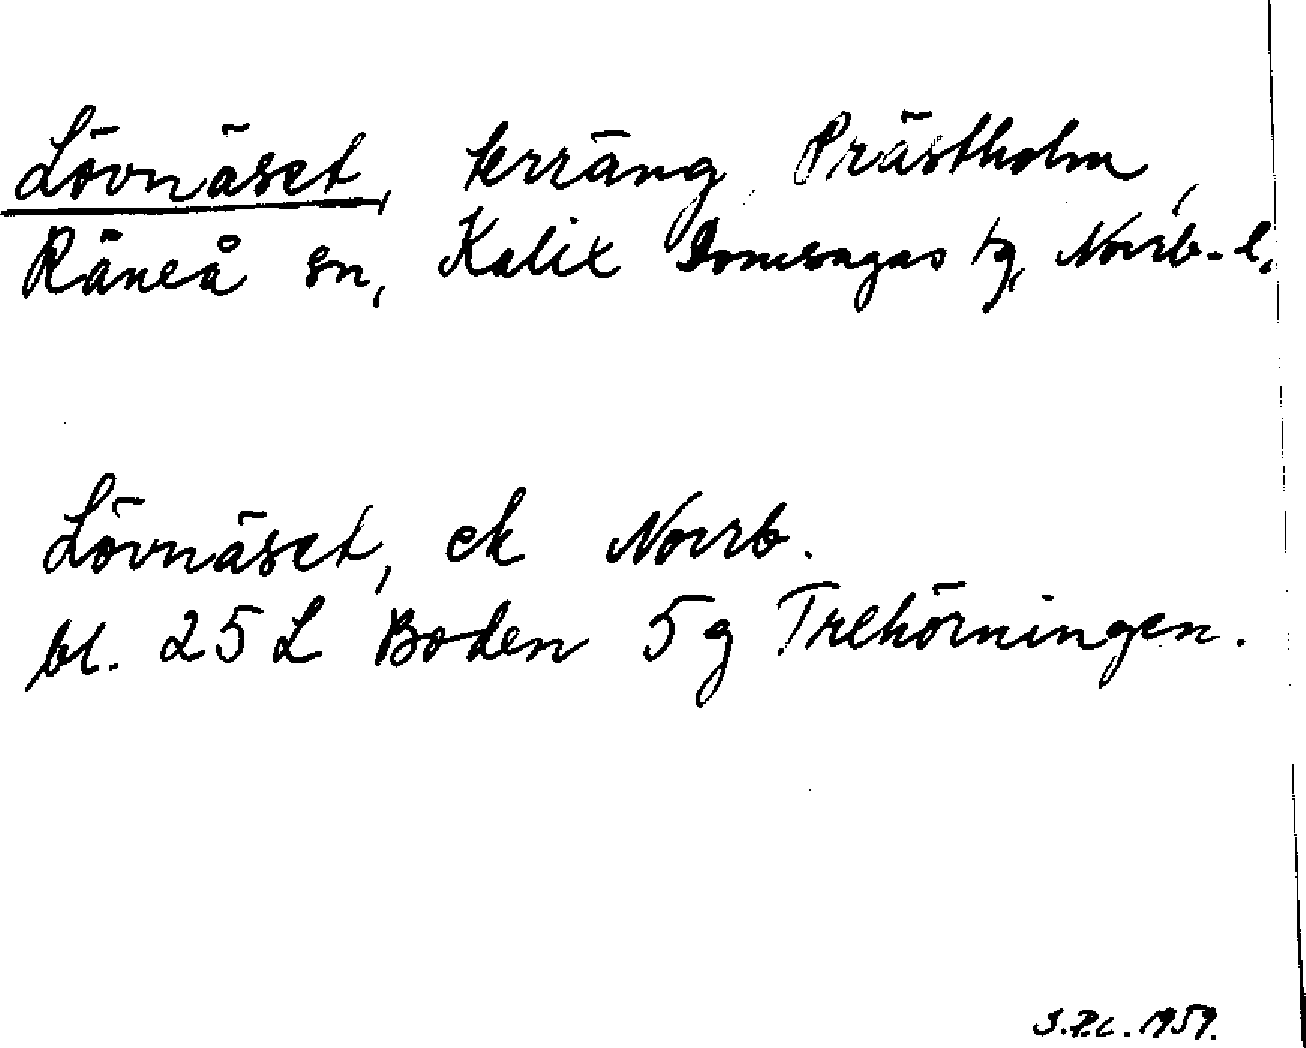 Lövnäset, terräng, Prästholm,
Råneå sn, Kalix Domsagas tg, Norrb. l.
Lövnäset, ek Norrb.
bl. 25 L Boden 5 g Trehörningen.
1959.